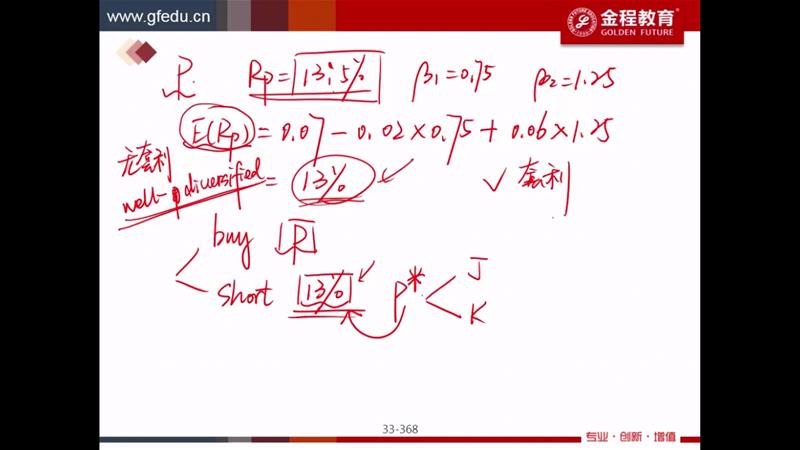 www.gfedu.cn
金程教育
GOLDEN FUTURE
P Rp=13.5% β1=0.75 β2=1.25
E(Rp)=0.07-0.02×0.75+0.06×1.25
无套利
well-diversified = 13% ✓ 套利
buy P
short 13% P* J
K
33-368
专业·创新·增值